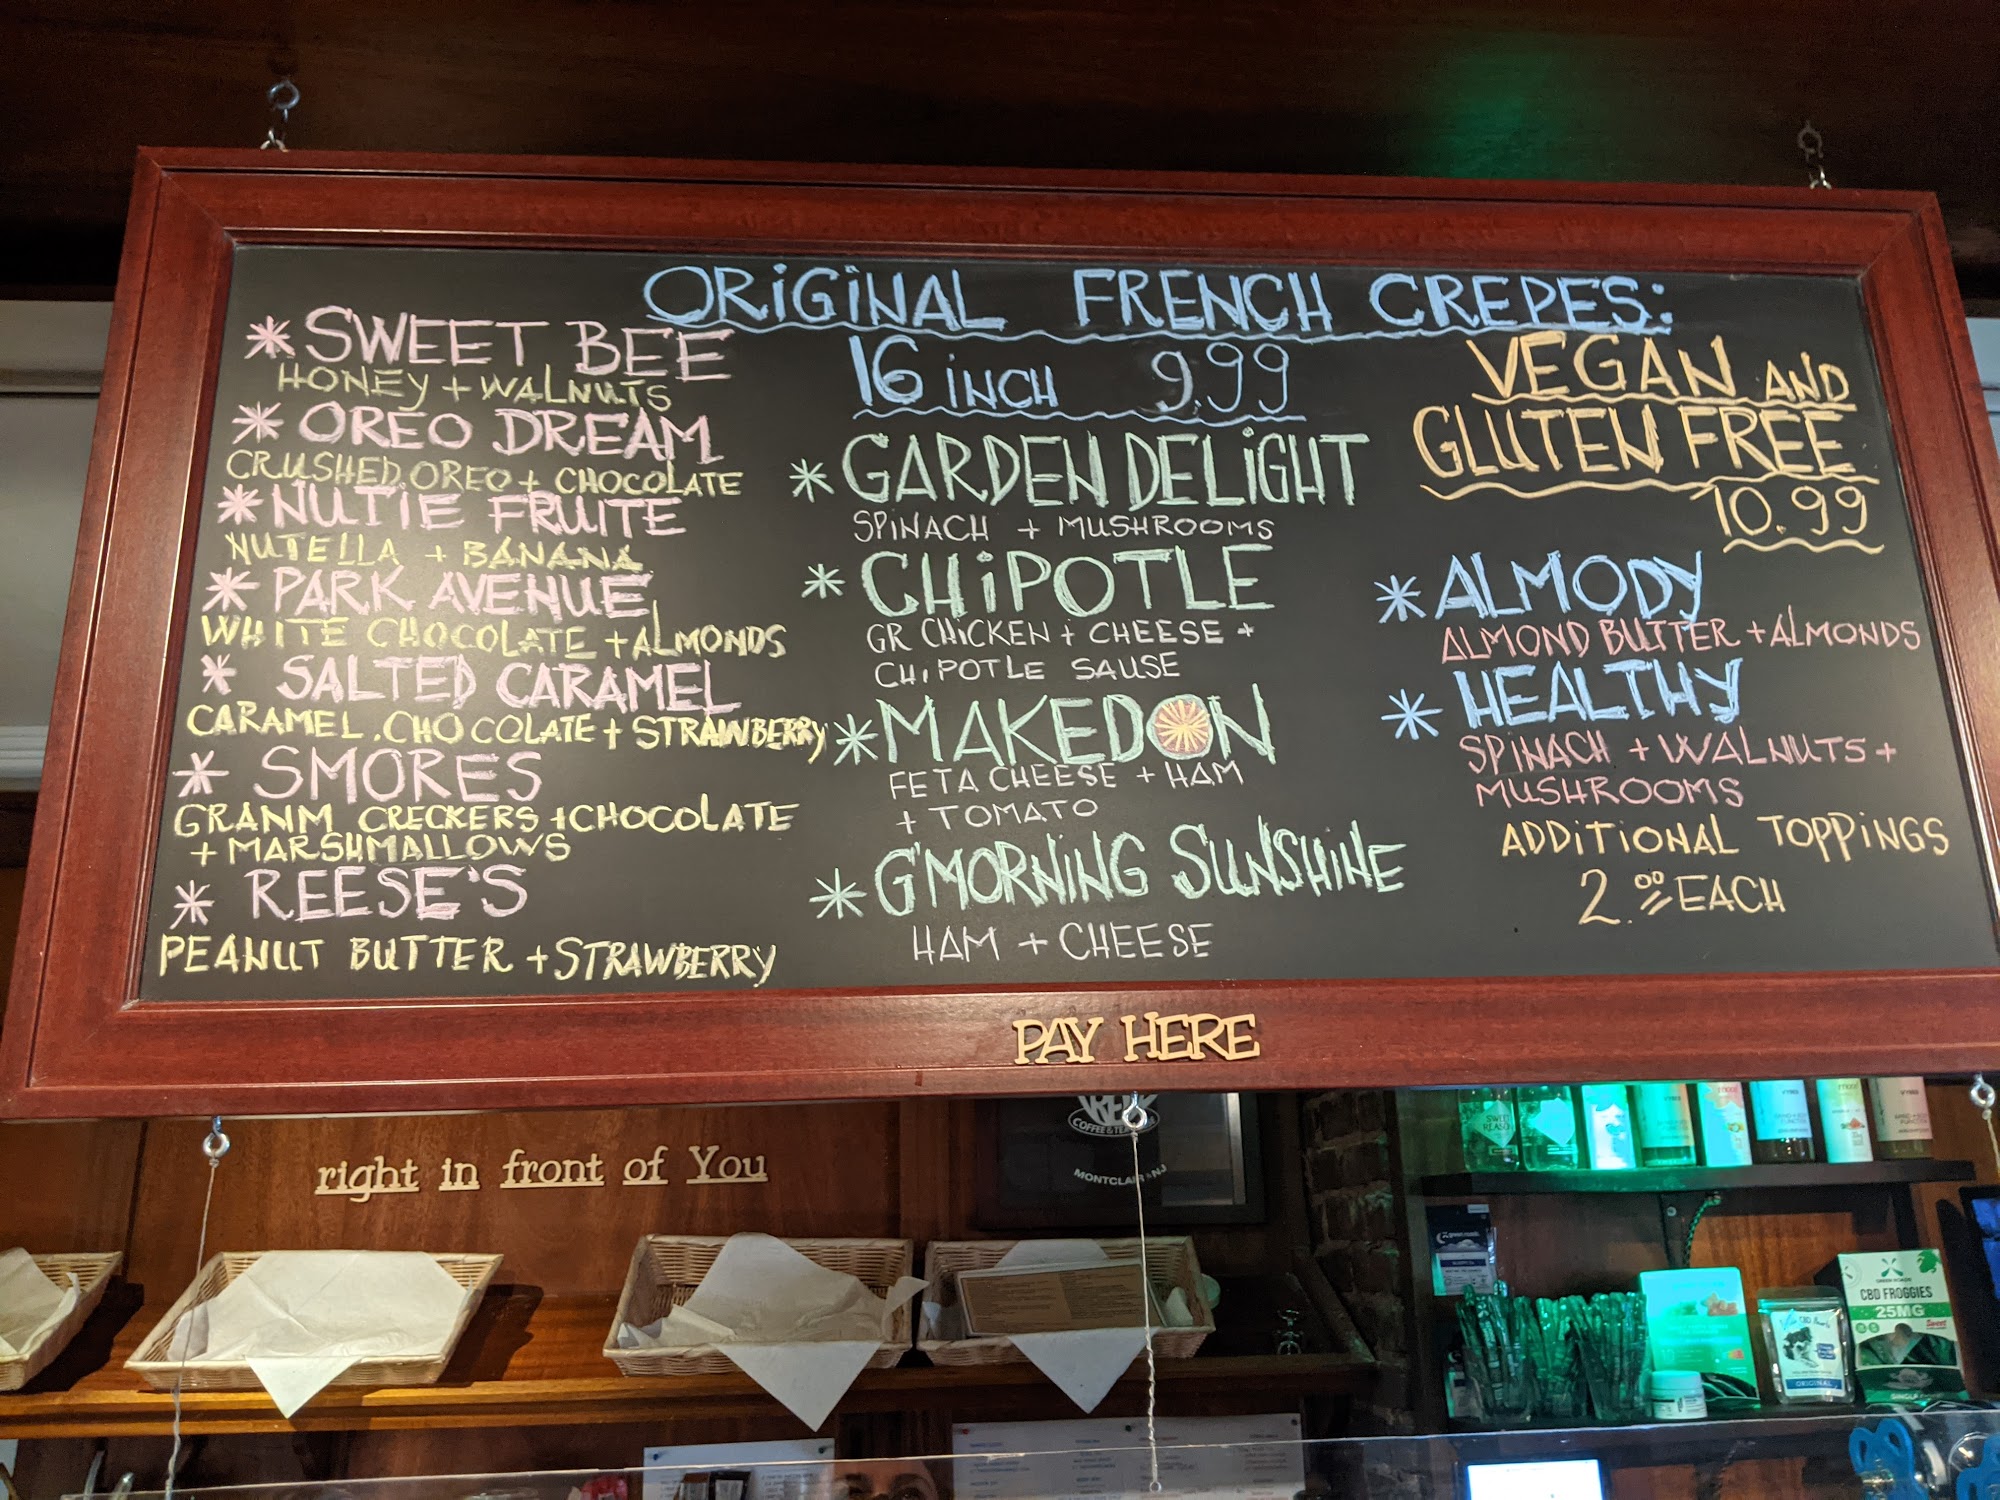 ORiGiNAL FRENCH CREPES:
16 iNCH 9.99
* SWEET BEE
HONEY + WALNUTS
* OREO DREAM
CRUSHED OREO + CHOCOLATE
* NUTIE FRUITE
NUTELLA + BANANA
* PARK AVENUE
WHITE CHOCOLATE + ALMONDS
* SALTED CARAMEL
CARAMEL.CHOCOLATE + STRAWBERRY
* SMORES
GRANM CRECKERS + CHOCOLATE
+ MARSHMALLOWS
* REESE'S
PEANUT BUTTER + STRAWBERRY
* GARDEN DELiGHT
SPINACH + MUSHROOMS
* CHiPOTLE
GR CHiCKEN + CHEESE +
CHiPOTLE SAUSE
* MAKEDON
FETA CHEESE + HAM
+ TOMATO
* G'MORNING SUNSHINE
HAM + CHEESE
VEGAN AND
GLUTEN FREE
10.99
* ALMODY
ALMOND BUTTER + ALMONDS
* HEALTHY
SPINACH + WALNUTS +
MUSHROOMS
ADDiTiONAL TOPPiNGS
2.00 EACH
PAY HERE
right in front of You
COFFEE & TEA
MONTCLAIR NJ
CBD FROGGIES
25MG
ORIGINAL